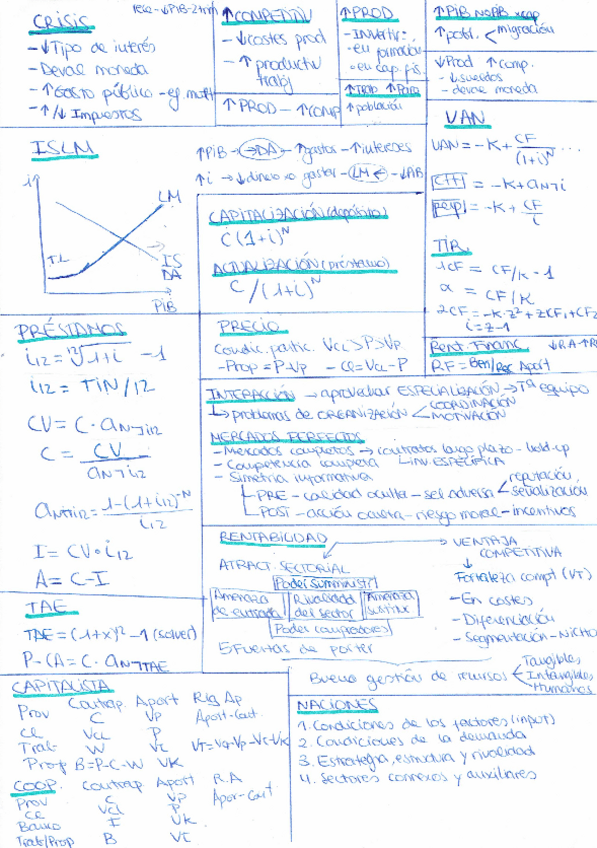 CRISIS
- ↓Tipo de interés
- Deval moneda
- ↑Gasto público - ej.
- ↑/↓ Impuestos
↑COMPETITIV
- ↓costes prod
- ↑ productiv trabj
↑PROD - ↑COMP
↑PROD
- Invertir
· en formación
· en cap. fis.
↑TRAB ↑Para
↑población
↑PIB
↑pobl. < migración
↓Prod ↑comp.
- ↓sueldos
- deval moneda
ISLM
i
LM
T.L
IS
DA
PIB
↑PIB → →DA → ↑gastar - ↑intereses
↑i → ↓dinero no gastar - LM← - ↓PIB
VAN
VAN = -K + CF/(1+i)^N ...
= -K + aN¬i
= -K + CF/i
TIR
1CF = CF/K - 1
α = CF/K
2CF = -K·z² + zCF1 + CF2
i = z-1
CAPITALIZACIÓN (depósito)
C(1+i)^N
ACTUALIZACIÓN (préstamo)
C/(1+i)^N
PRÉSTAMOS
i12 = ¹²√1+i - 1
i12 = TIN/12
CV = C · aN¬i12
C = CV / aN¬i12
aN¬i12 = 1-(1+i12)^-N / i12
I = CV · i12
A = C - I
PRECIO
Condic. partic. Vcl > P > Vp
- Prop = P - Vp - Cl = Vcl - P
Rent. Financ.
RF = Ben/Rec Aport
INTERACCIÓN → aprovechar ESPECIALIZACIÓN → Tª equipo
↳ problemas de ORGANIZACIÓN < COORDINACIÓN
MOTIVACIÓN
MERCADOS PERFECTOS
- Mercados completos → contratos largo plazo - hold-up
- Competencia completa ↳ INV. ESPECÍFICA
- Simetría informativa
PRE - calidad oculta - sel adversa < reputación
señalización
POST - acción oculta - riesgo moral - incentivos
RENTABILIDAD
→ VENTAJA COMPETITIVA
ATRACT. SECTORIAL
Poder suministr
Amenaza de entrada
Rivalidad del sector
Amenaza sustitut
Poder compradores
5 Fuerzas de porter
Fortaleza compt (VT)
- En costes
- Diferenciación
- Segmentación - NICHO
Buena gestión de recursos < Tangibles,
Intangibles,
Humanos
TAE
TAE = (1+x)¹² - 1 (solver)
P - CA = C · aN¬TAE
CAPITALISTA
Contrap. Aport Rig Ap
Prov C Vp Aport-Cont.
CL Vcl P
Trab W Vt VT=Vcl-Vp-Vt-Vk
Prop B=P-C-W Vk
COOP.
Contrap Aport R.A
Prov C Vp Apor-Cont
CL Vcl P
Banco I Vk
Trab/Prop B Vt
NACIONES
1. Condiciones de los factores (input)
2. Condiciones de la demanda
3. Estrategia, estructura y rivalidad
4. Sectores conexos y auxiliares